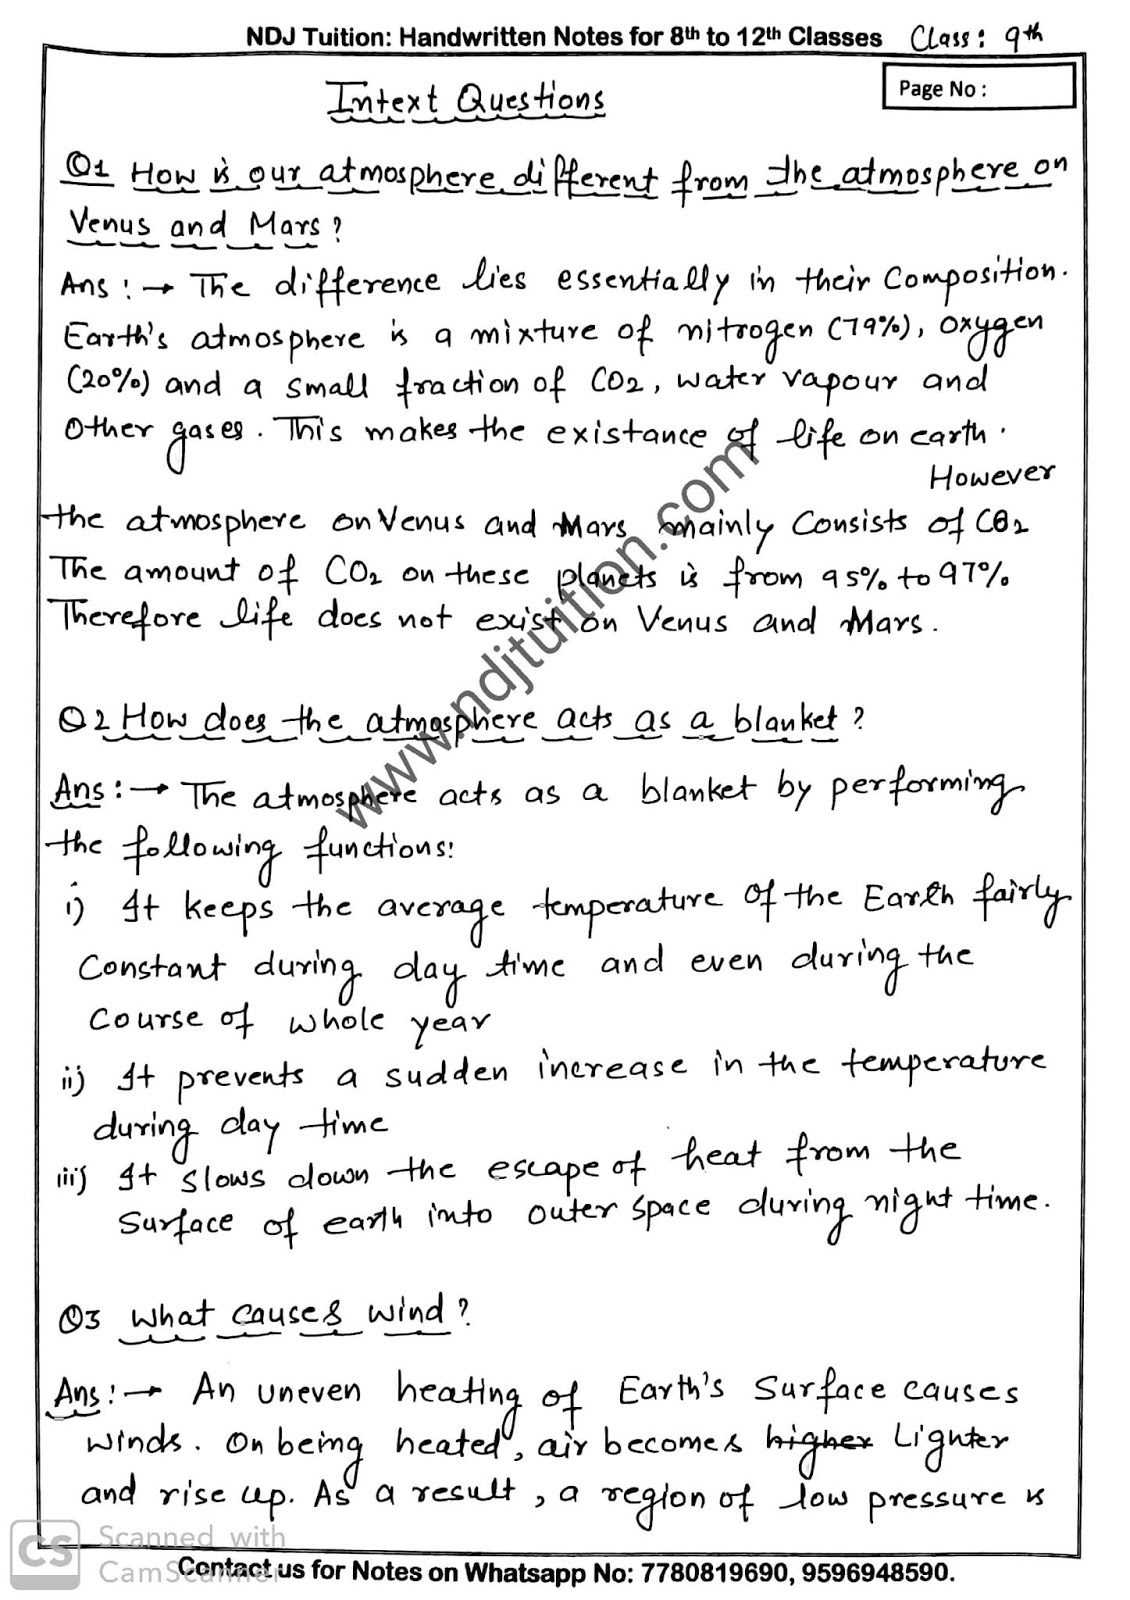 NDJ Tuition: Handwritten Notes for 8th to 12th Classes Class: 9th
Page No :
Intext Questions
Q1 How is our atmosphere different from the atmosphere on
Venus and Mars?
Ans :→ The difference lies essentially in their Composition.
Earth's atmosphere is a mixture of nitrogen (79%), oxygen
(20%) and a small fraction of CO2, water vapour and
Other gases. This makes the existance of life on earth.
However
the atmosphere on Venus and Mars mainly Consists of CO2
The amount of CO2 on these planets is from 95% to 97%
Therefore life does not exist on Venus and Mars.
Q2 How does the atmosphere acts as a blanket?
Ans :→ The atmosphere acts as a blanket by performing
the following functions:
i) It keeps the average temperature of the Earth fairly
Constant during day time and even during the
Course of whole year
ii) It prevents a sudden increase in the temperature
during day time
iii) It slows down the escape of heat from the
Surface of earth into outer space during night time.
Q3 What causes wind?
Ans :→ An uneven heating of Earth's Surface causes
winds. On being heated, air becomes higher Lighter
and rise up. As a result, a region of low pressure is
www.ndjtuition.com
CS Scanned with
CamScanner
Contact us for Notes on Whatsapp No: 7780819690, 9596948590.